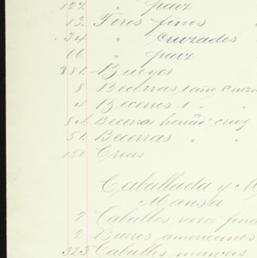 127 " pais
12 Toros finos
34 " cruzados
66 " pais
881 Bueyes
8 Becerras 1 año cruza
4 Becerros 1 " "
804 Becerra hem cruz
51 Becerras " "
150 Crias
Caballada y M
Mansa
2 Caballos raza fina
2 Burros americanos
323 Caballos mansos